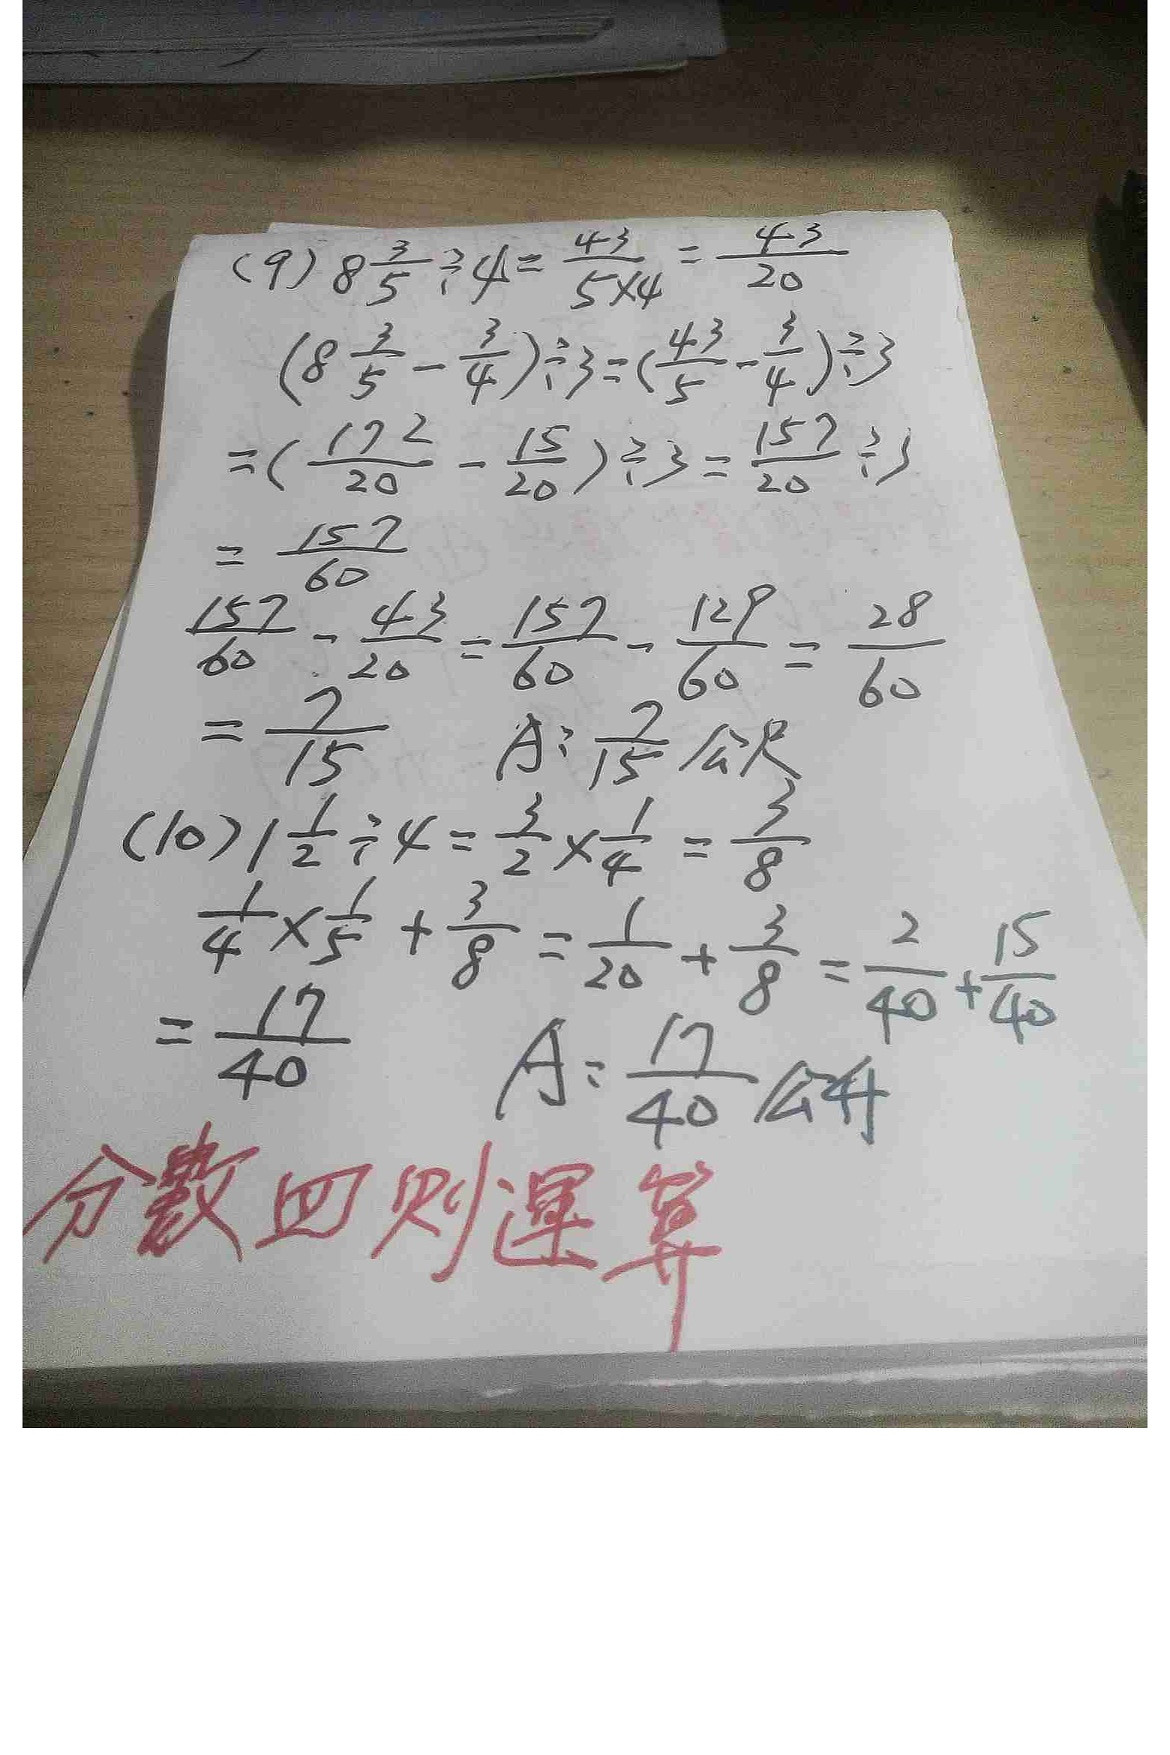 (9) 8 3/5 ÷ 4 = 43/5×4 = 43/20
(8 3/5 - 3/4) ÷ 3 = (43/5 - 3/4) ÷ 3
= (172/20 - 15/20) ÷ 3 = 157/20 ÷ 3
= 157/60
157/60 - 43/20 = 157/60 - 129/60 = 28/60
= 7/15 A: 7/15 公尺
(10) 1 1/2 ÷ 4 = 3/2 × 1/4 = 3/8
1/4 × 1/5 + 3/8 = 1/20 + 3/8 = 2/40 + 15/40
= 17/40 A: 17/40 公升
分數四則運算